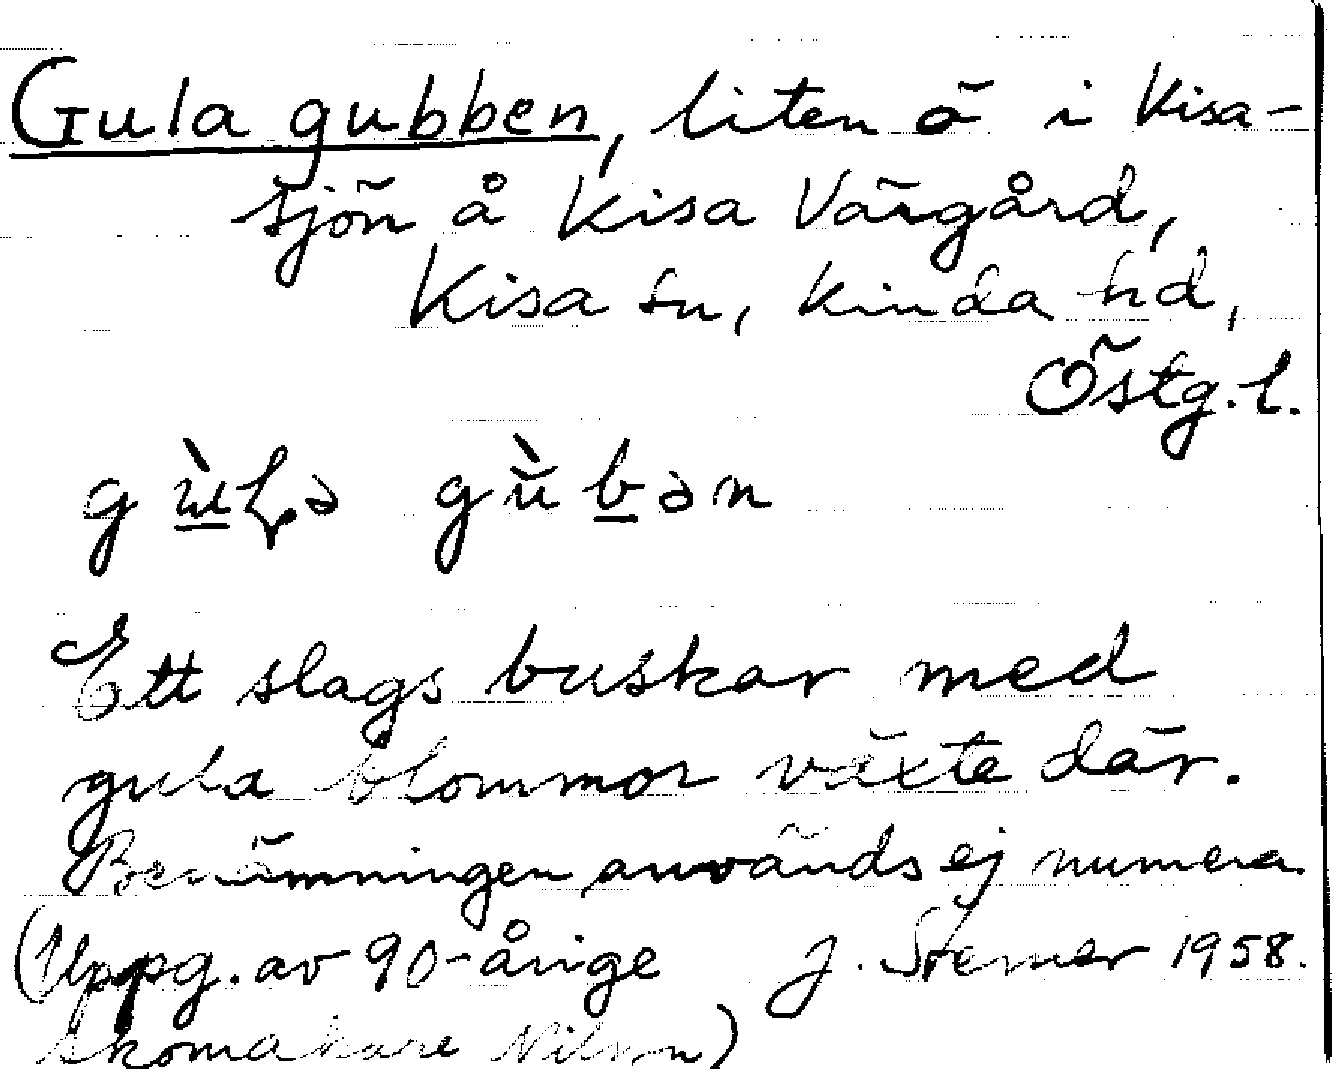 Gula gubben, liten ö i Kisa-
sjön å Kisa Värgård,
Kisa sn, Kinda hd,
Östg. l.
gùlə gùbən
Ett slags buskar med
gula blommor växte där.
Benämningen används ej numera
(Uppg. av 90-årige J. Sterner 1958.
skomakare Nilson)